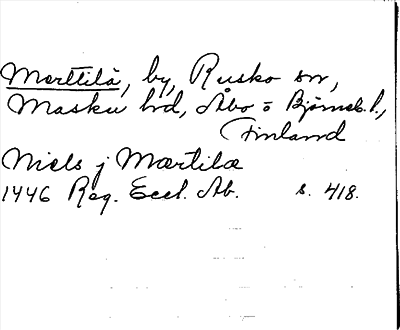 Merttilä, by, Rusko sn,
Masku hd, Åbo o Björneb. l.,
Finland
Niels j Mærtilæ
1446 Reg. Eccl. Ab. s. 418.